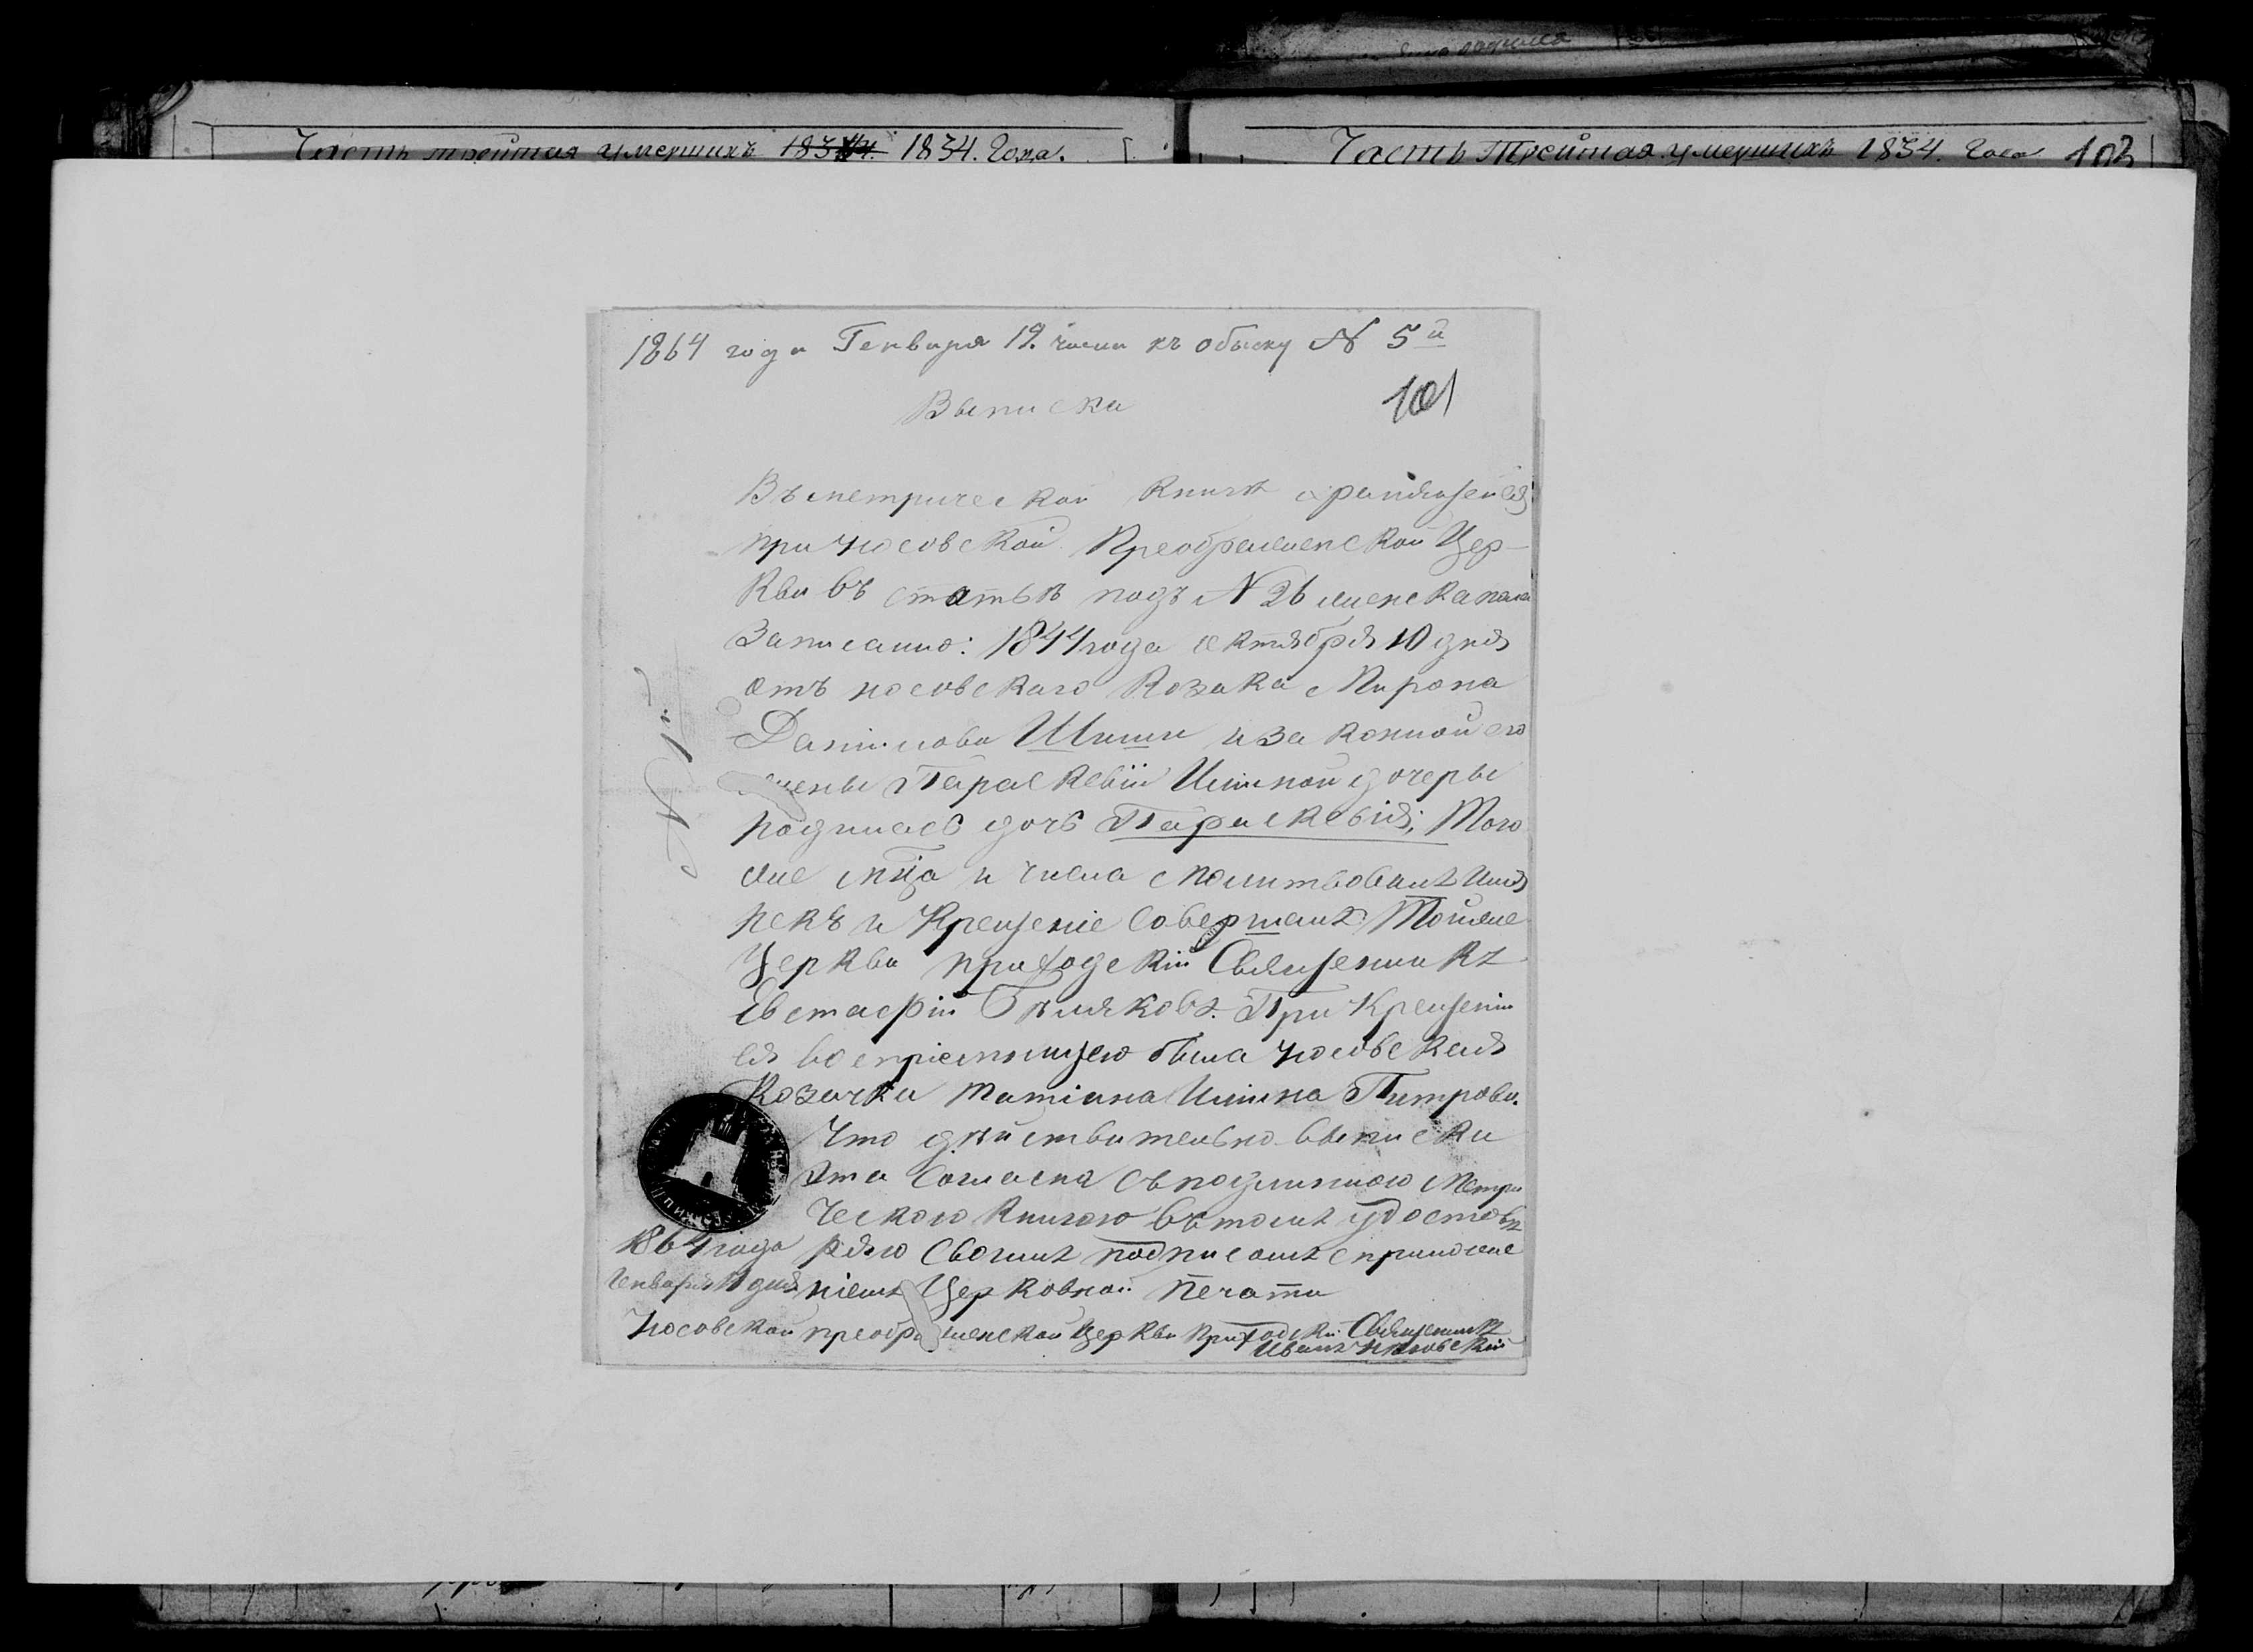 Часть третія умершихъ 1834. Года.
Часть Третія умершихъ 1834. Года 103
1864 года Генваря 12. числа къ обыску № 5й
Выписка
101
Въ метрической Книгѣ хранящейся
при Носовской Преображенской Цер-
кви въ статьѣ подъ N 26 женска пола
Записанно: 1844 года октября 10 дня
отъ носовскаго Козака Мирона
Данилова Шиши и законной его
жены Параскевіи дочеры
родилась дочь Параскевія; Того
же мца и числа Молитвовалъ Имя
рекъ и Крещеніе Совершалъ Тойже
Церкви приходскій Священникъ
Евстафій Бѣляковъ. При Крещеніи
ея воспріемницею была Носовская
Козачка Татіана Петрова.
Что дѣйствительно выписка
эта Согласна Съ подлинною Метри
ческою Книгою въ томъ удостовѣ
ряю Своимъ подписомъ с приложе
ніемъ Церковной Печати
1864 года
Генваря дня
Носовской преображенской Церкви Приходскій Священникъ
Иванъ
№